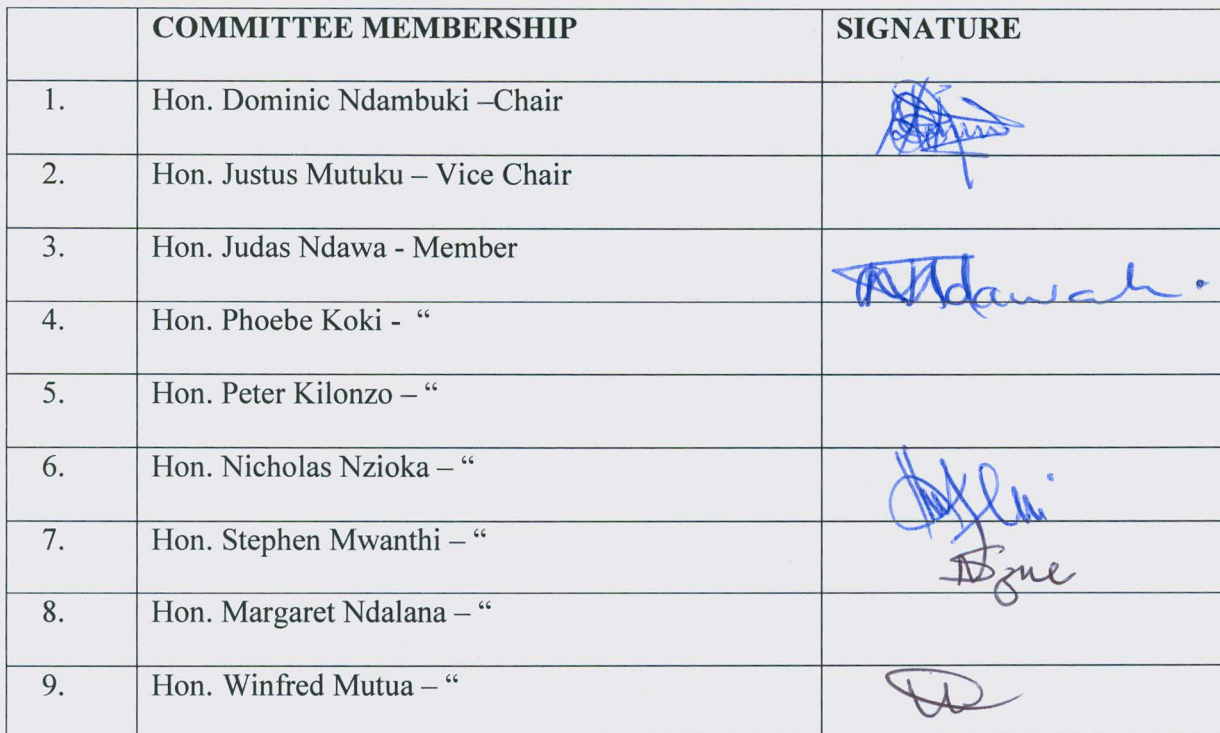 COMMITTEE MEMBERSHIP SIGNATURE
1. Hon. Dominic Ndambuki –Chair
2. Hon. Justus Mutuku – Vice Chair
3. Hon. Judas Ndawa - Member
4. Hon. Phoebe Koki - “
5. Hon. Peter Kilonzo – “
6. Hon. Nicholas Nzioka – “
7. Hon. Stephen Mwanthi – “
8. Hon. Margaret Ndalana – “
9. Hon. Winfred Mutua – “